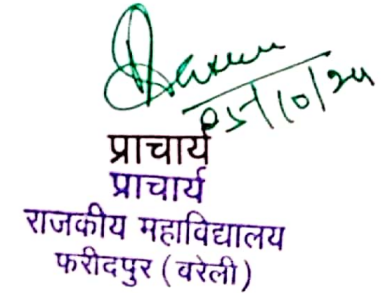 05/10/24
प्राचार्य
प्राचार्य
राजकीय महाविद्यालय
फरीदपुर (बरेली)